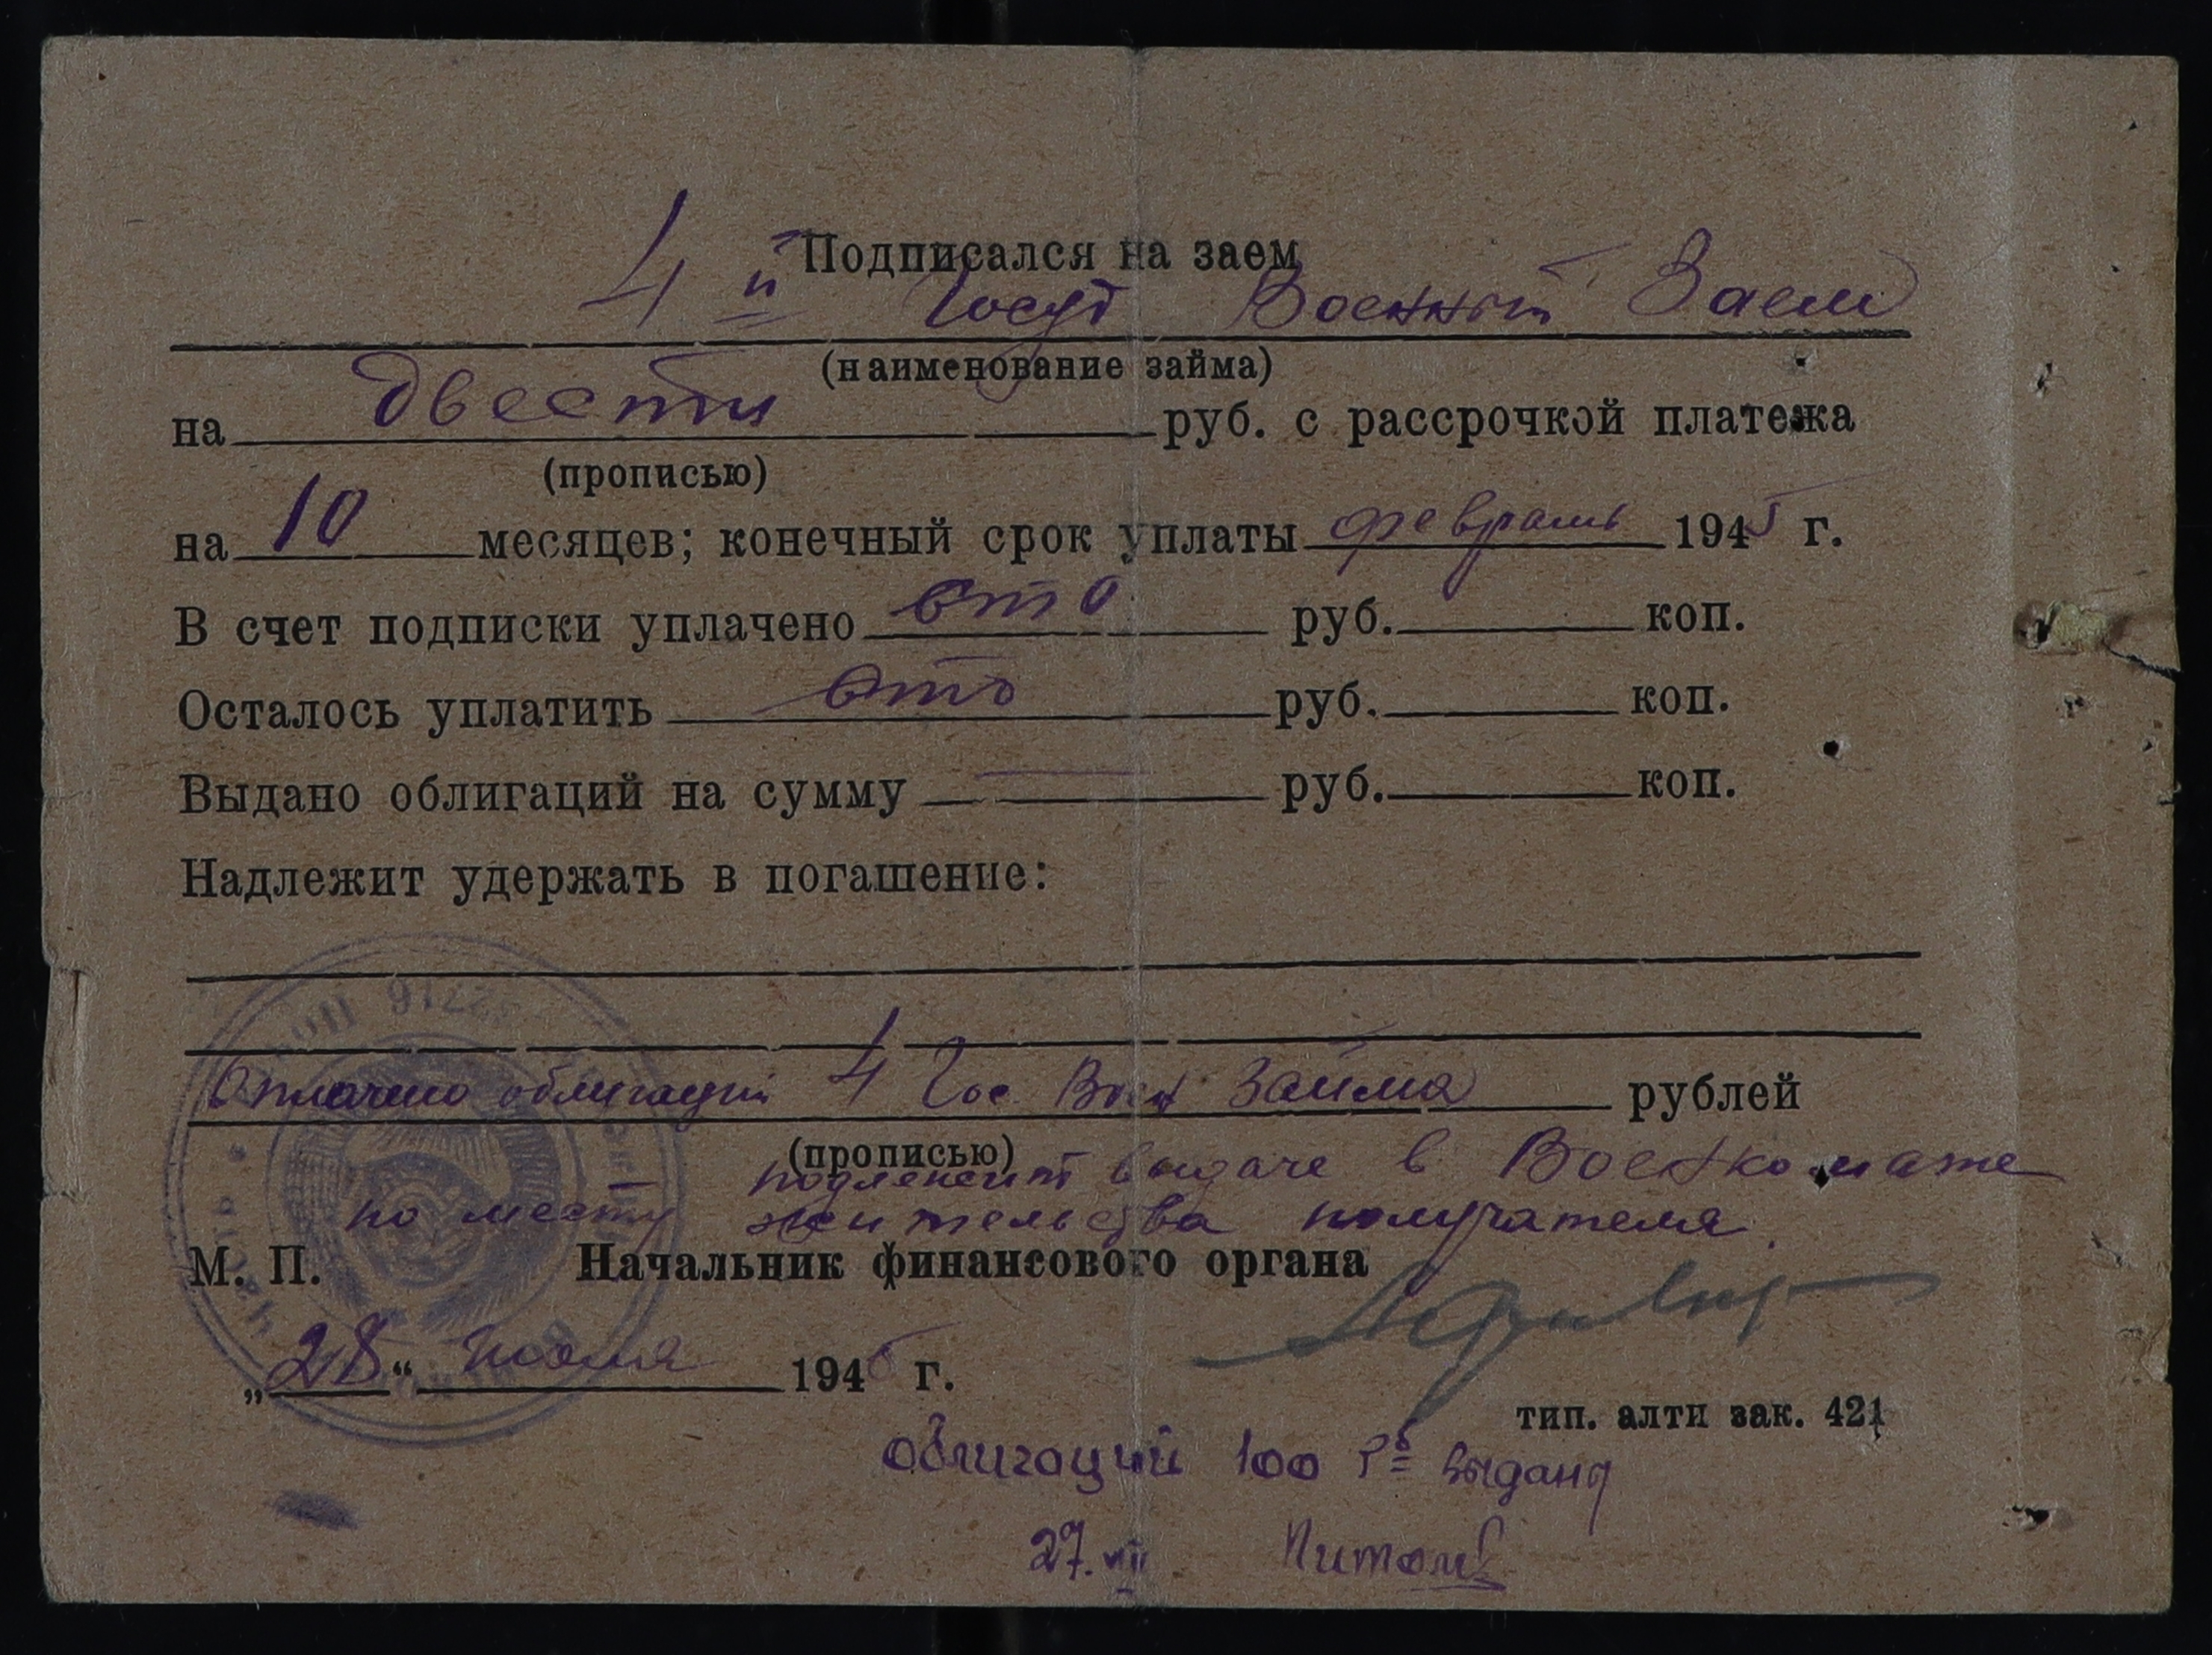 Подписался на заем
4й Госуд Военный Заем
(наименование займа)
на двести руб. с рассрочкой платежа
(прописью)
на 10 месяцев; конечный срок уплаты февраль 1945 г.
В счет подписки уплачено сто руб. коп.
Осталось уплатить сто руб. коп.
Выдано облигаций на сумму — руб. коп.
Надлежит удержать в погашение:
Оплачено облигаций 4 Гос. Воен Займа рублей
(прописью)
подлежит выдаче в Военкомате
по месту жительства получателя.
М. П. Начальник финансового органа
„28“ июля 194 г.
тип. алти зак. 421
облигаций 100 рб выдано
27.VII